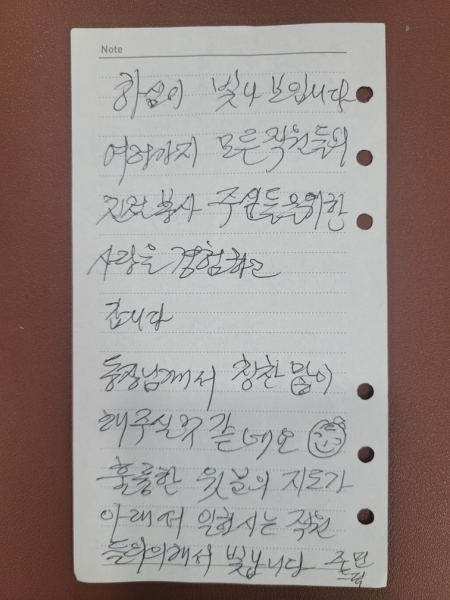 Note
하심이 빛나 보입니다
여러가지 모든 직원들의
친절 봉사 주민들을위한
사랑을 경험하고
갑니다
동장님께서 칭찬 많이
해주실것 같네요
훌륭한 윗분의 지도가
아래서 일하시는 직원
들의의해서 빛납니다 주민
드림